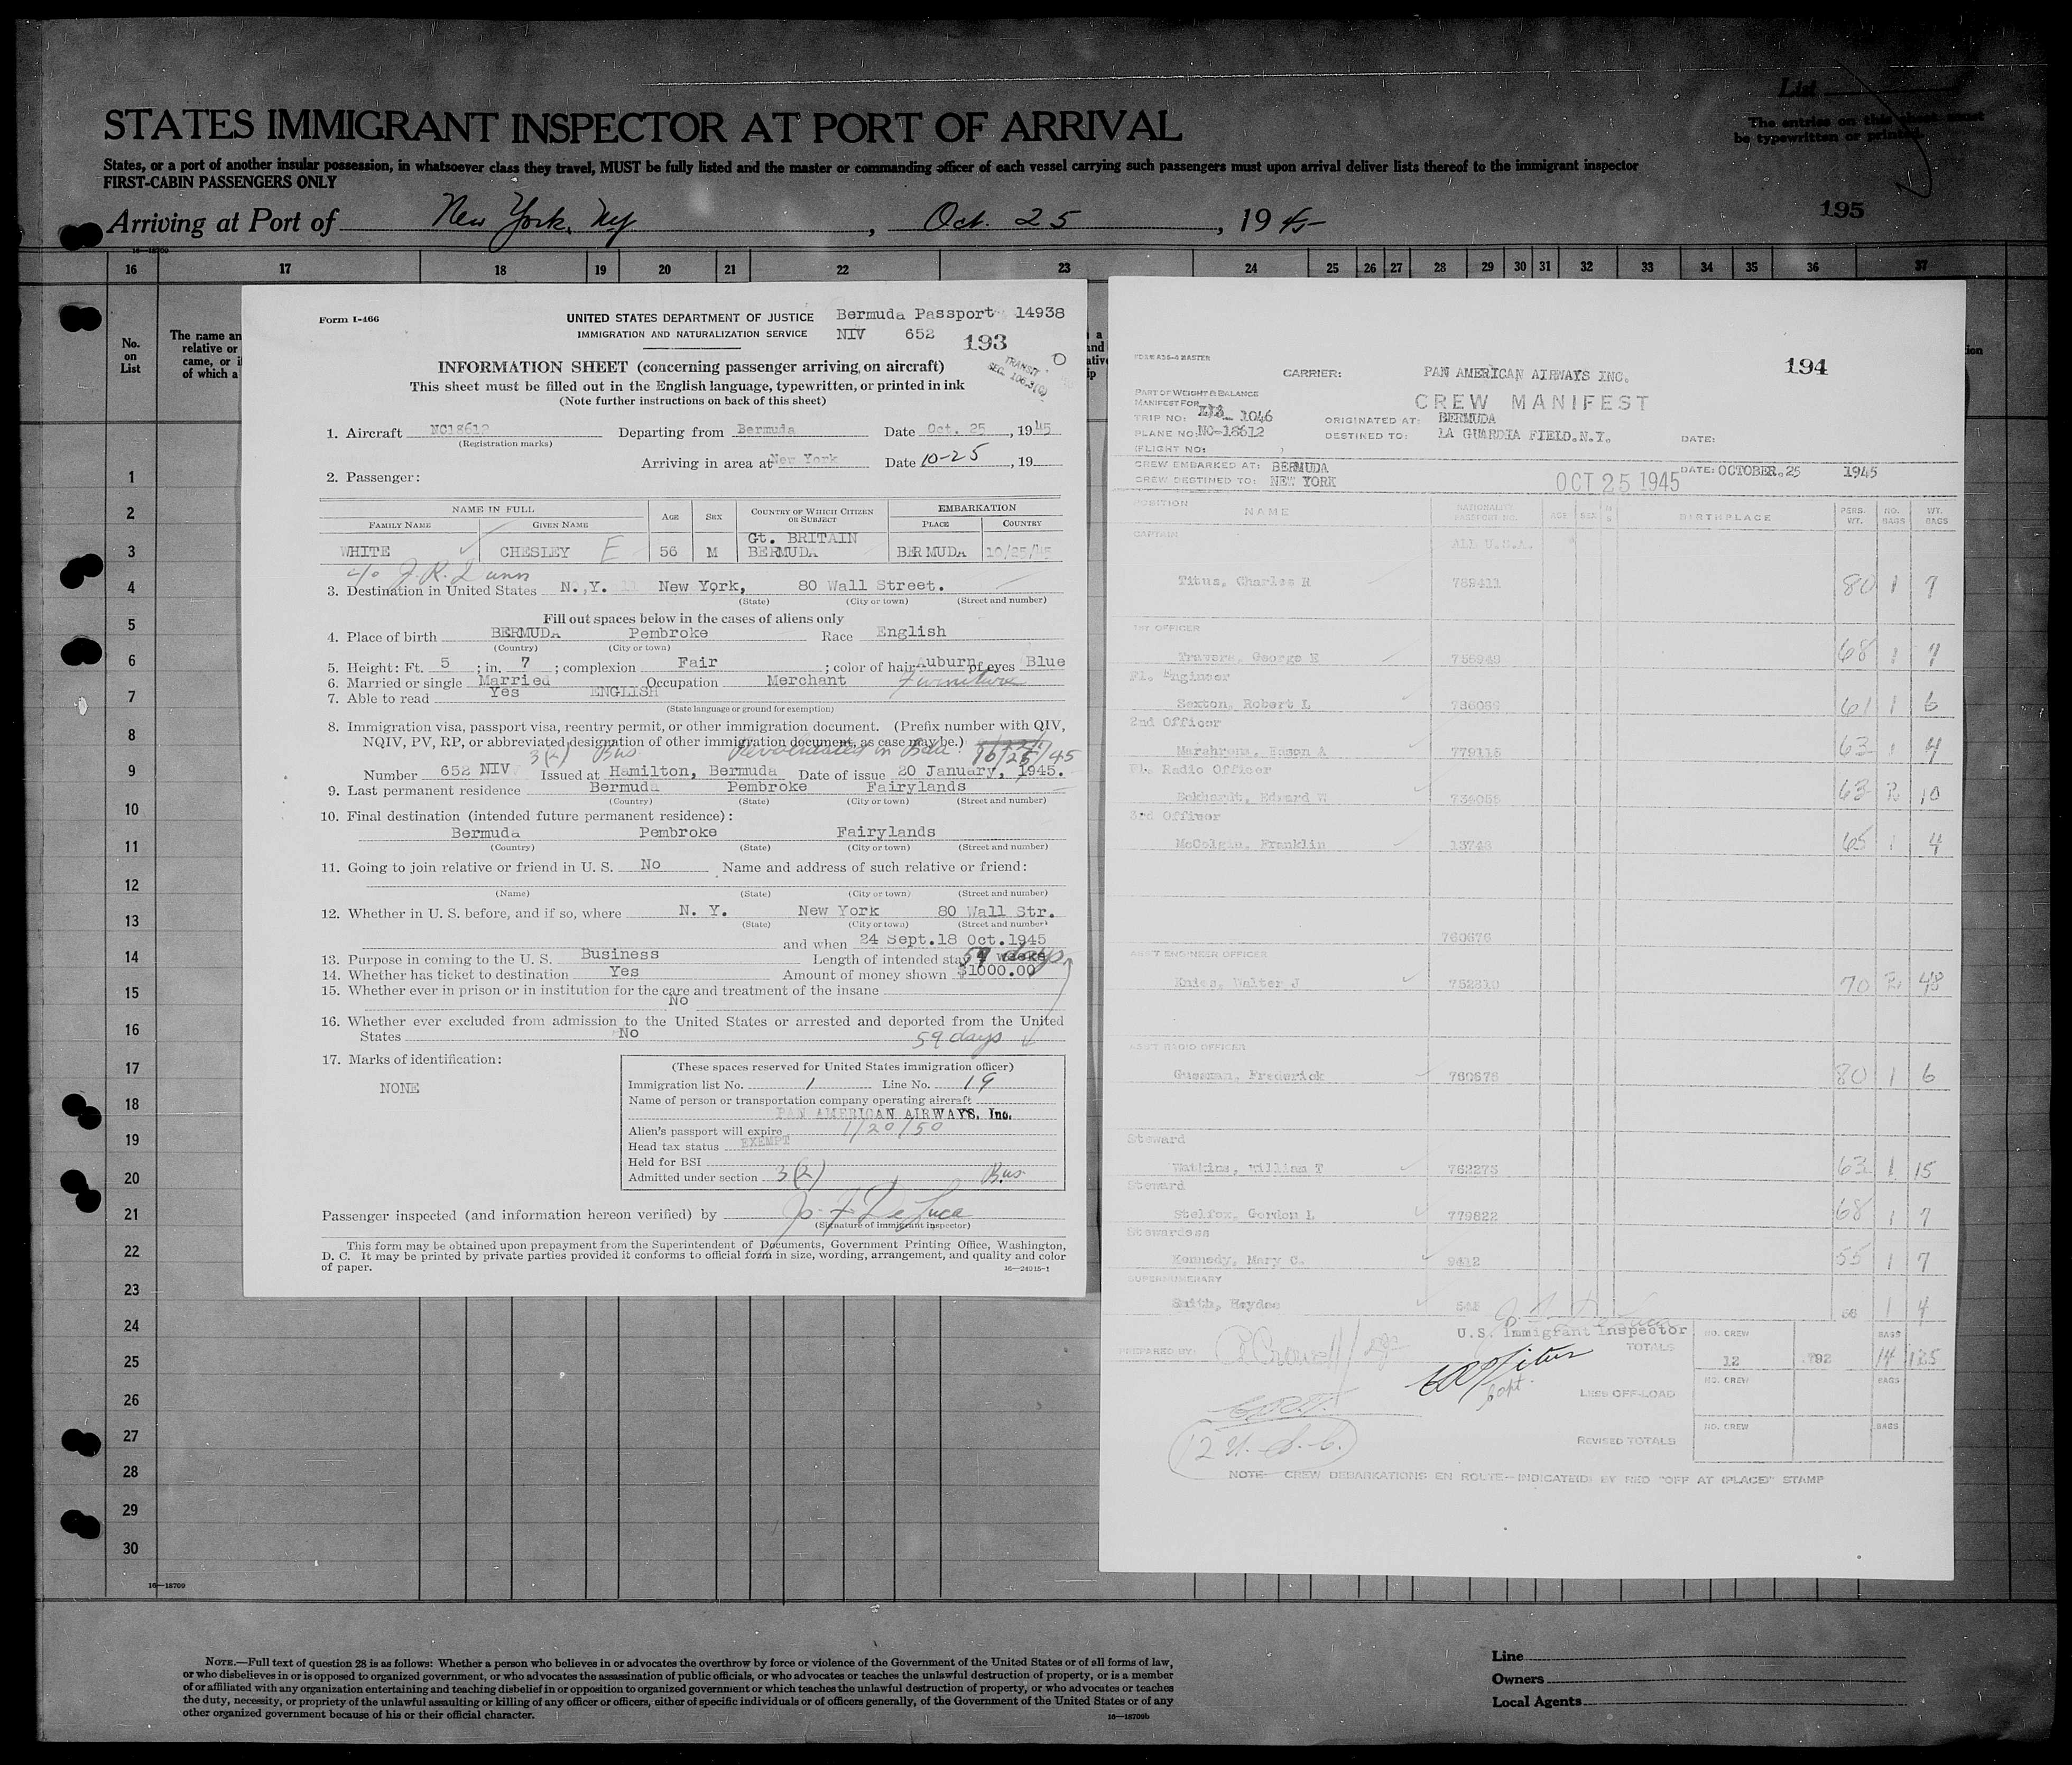 STATES IMMIGRANT INSPECTOR AT PORT OF ARRIVAL
List
The entries on this sheet must
be typewritten or printed.
States, or a port of another insular possession, in whatsoever class they travel, MUST be fully listed and the master or commanding officer of each vessel carrying such passengers must upon arrival deliver lists thereof to the immigrant inspector
FIRST-CABIN PASSENGERS ONLY
Arriving at Port of New York, Ny, Oct. 25, 1945
195
16—18709
16 17 18 19 20 21 22 23 24 25 26 27 28 29 30 31 32 33 34 35 36 37
No.
on
List
The name an
relative or
came, or i
of which a
1
2
3
4
5
6
7
8
9
10
11
12
13
14
15
16
17
18
19
20
21
22
23
24
25
26
27
28
29
30
16—18709
Form I-466
UNITED STATES DEPARTMENT OF JUSTICE
IMMIGRATION AND NATURALIZATION SERVICE
Bermuda Passport 14938
NIV 652
193
TRANSIT
INFORMATION SHEET (concerning passenger arriving on aircraft)
This sheet must be filled out in the English language, typewritten, or printed in ink
(Note further instructions on back of this sheet)
1. Aircraft NC18612 Departing from Bermuda Date Oct. 25, 1945
(Registration marks)
Arriving in area at New York Date 10-25, 19
2. Passenger:
NAME IN FULL AGE SEX COUNTRY OF WHICH CITIZEN OR SUBJECT EMBARKATION
FAMILY NAME GIVEN NAME PLACE COUNTRY
WHITE CHESLEY E 56 M Gt. BRITAIN BERMUDA BERMUDA 10/25/45
c/o J. R. Dunn
3. Destination in United States N.,Y. New York, 80 Wall Street.
(State) (City or town) (Street and number)
Fill out spaces below in the cases of aliens only
4. Place of birth BERMUDA Pembroke Race English
(Country) (City or town)
5. Height: Ft. 5; in. 7; complexion Fair; color of hair Auburn of eyes Blue
6. Married or single Married Occupation Merchant Furniture
7. Able to read Yes ENGLISH
(State language or ground for exemption)
8. Immigration visa, passport visa, reentry permit, or other immigration document. (Prefix number with QIV,
NQIV, PV, RP, or abbreviated designation of other immigration document, as case may be.)
3(2) Bus. Revalidated in Bda 10/25/45
Number 652 NIV Issued at Hamilton, Bermuda Date of issue 20 January, 1945.
9. Last permanent residence Bermuda Pembroke Fairylands
(Country) (State) (City or town) (Street and number)
10. Final destination (intended future permanent residence):
Bermuda Pembroke Fairylands
(Country) (State) (City or town) (Street and number)
11. Going to join relative or friend in U. S. No Name and address of such relative or friend:
(Name) (State) (City or town) (Street and number)
12. Whether in U. S. before, and if so, where N. Y. New York 80 Wall Str.
(State) (City or town) (Street and number)
and when 24 Sept.18 Oct.1945
13. Purpose in coming to the U. S. Business Length of intended stay 59 days
14. Whether has ticket to destination Yes Amount of money shown $1000.00
15. Whether ever in prison or in institution for the care and treatment of the insane
No
16. Whether ever excluded from admission to the United States or arrested and deported from the United
States No
59 days
17. Marks of identification:
NONE
(These spaces reserved for United States immigration officer)
Immigration list No. 1 Line No. 19
Name of person or transportation company operating aircraft
PAN AMERICAN AIRWAYS, Inc.
Alien's passport will expire 1/20/50
Head tax status EXEMPT
Held for BSI
Admitted under section 3(2) Bus
Passenger inspected (and information hereon verified) by J. F. DeLuca
(Signature of immigrant inspector)
This form may be obtained upon prepayment from the Superintendent of Documents, Government Printing Office, Washington,
D. C. It may be printed by private parties provided it conforms to official form in size, wording, arrangement, and quality and color
of paper.
16—24915-1
FORM 436-4 MASTER
CARRIER: PAN AMERICAN AIRWAYS INC.
194
CREW MANIFEST
PART OF WEIGHT & BALANCE
MANIFEST FOR
TRIP NO: 1046 ORIGINATED AT: BERMUDA
PLANE NO: NC-18612 DESTINED TO: LA GUARDIA FIELD.N.Y. DATE:
(FLIGHT NO: )
CREW EMBARKED AT: BERMUDA DATE: OCTOBER.25 1945
CREW DESTINED TO: NEW YORK
OCT 25 1945
POSITION NAME NATIONALITY PASSPORT NO. AGE SEX BIRTHPLACE PERS. WT. NO. BAGS WT. BAGS
CAPTAIN ALL U.S.A.
Titus, Charles R 789411 80 1 7
1ST OFFICER
Travers, George E 755949 68 1 7
Fl. Engineer
Sexton, Robert L 61 1 6
2nd Officer
779115 63 1 4
Fl. Radio Officer
Eckhardt, Edward W 63 2 10
3rd Officer
McColgin, Franklin 65 1 4
760676
ASST ENGINEER OFFICER
Knies, Walter J 70 2 48
ASST RADIO OFFICER
Gussman, Frederick 760675 80 1 6
Steward
Watkins, William T 762273 63 1 15
Steward
Stelfox, Gordon L 779822 68 1 7
Stewardess
Kennedy, Mary C. 9412 55 1 7
SUPERNUMERARY
Smith, Haydne 1 4
U.S. Immigrant Inspector
PREPARED BY:
TOTALS
NO. CREW 12 792 BAGS 14 125
Capt.
LESS OFF-LOAD NO. CREW BAGS
12 U.S.C.
REVISED TOTALS NO. CREW BAGS
NOTE— CREW DEBARKATIONS EN ROUTE—INDICATE(D) BY RED "OFF AT (PLACE)" STAMP
NOTE.—Full text of question 28 is as follows: Whether a person who believes in or advocates the overthrow by force or violence of the Government of the United States or of all forms of law,
or who disbelieves in or is opposed to organized government, or who advocates the assassination of public officials, or who advocates or teaches the unlawful destruction of property, or is a member
of or affiliated with any organization entertaining and teaching disbelief in or opposition to organized government or which teaches the unlawful destruction of property, or who advocates or teaches
the duty, necessity, or propriety of the unlawful assaulting or killing of any officer or officers, either of specific individuals or of officers generally, of the Government of the United States or of any
other organized government because of his or their official character.
16—18709b
Line
Owners
Local Agents